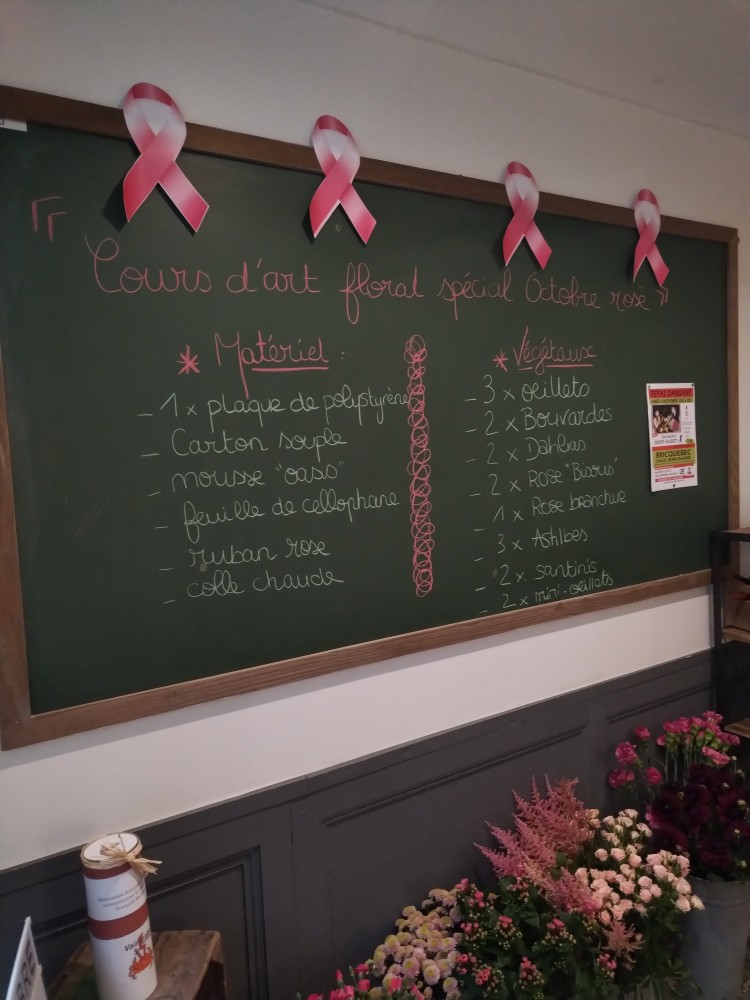 "Cours d'art floral spécial Octobre rose"
* Matériel :
- 1 x plaque de polystyrène
- Carton souple
- mousse "oasis"
- feuille de cellophane
- ruban rose
- colle chaude
* Végétaux
- 3 x oeillets
- 2 x Bouvardes
- 2 x Dahlias
- 2 x Rose "Bisous"
- 1 x Rose branchue
- 3 x Astilbes
- 2 x santinis
- 2 x mini-oeillets
REPAS DANSANT
BRICQUEBEC